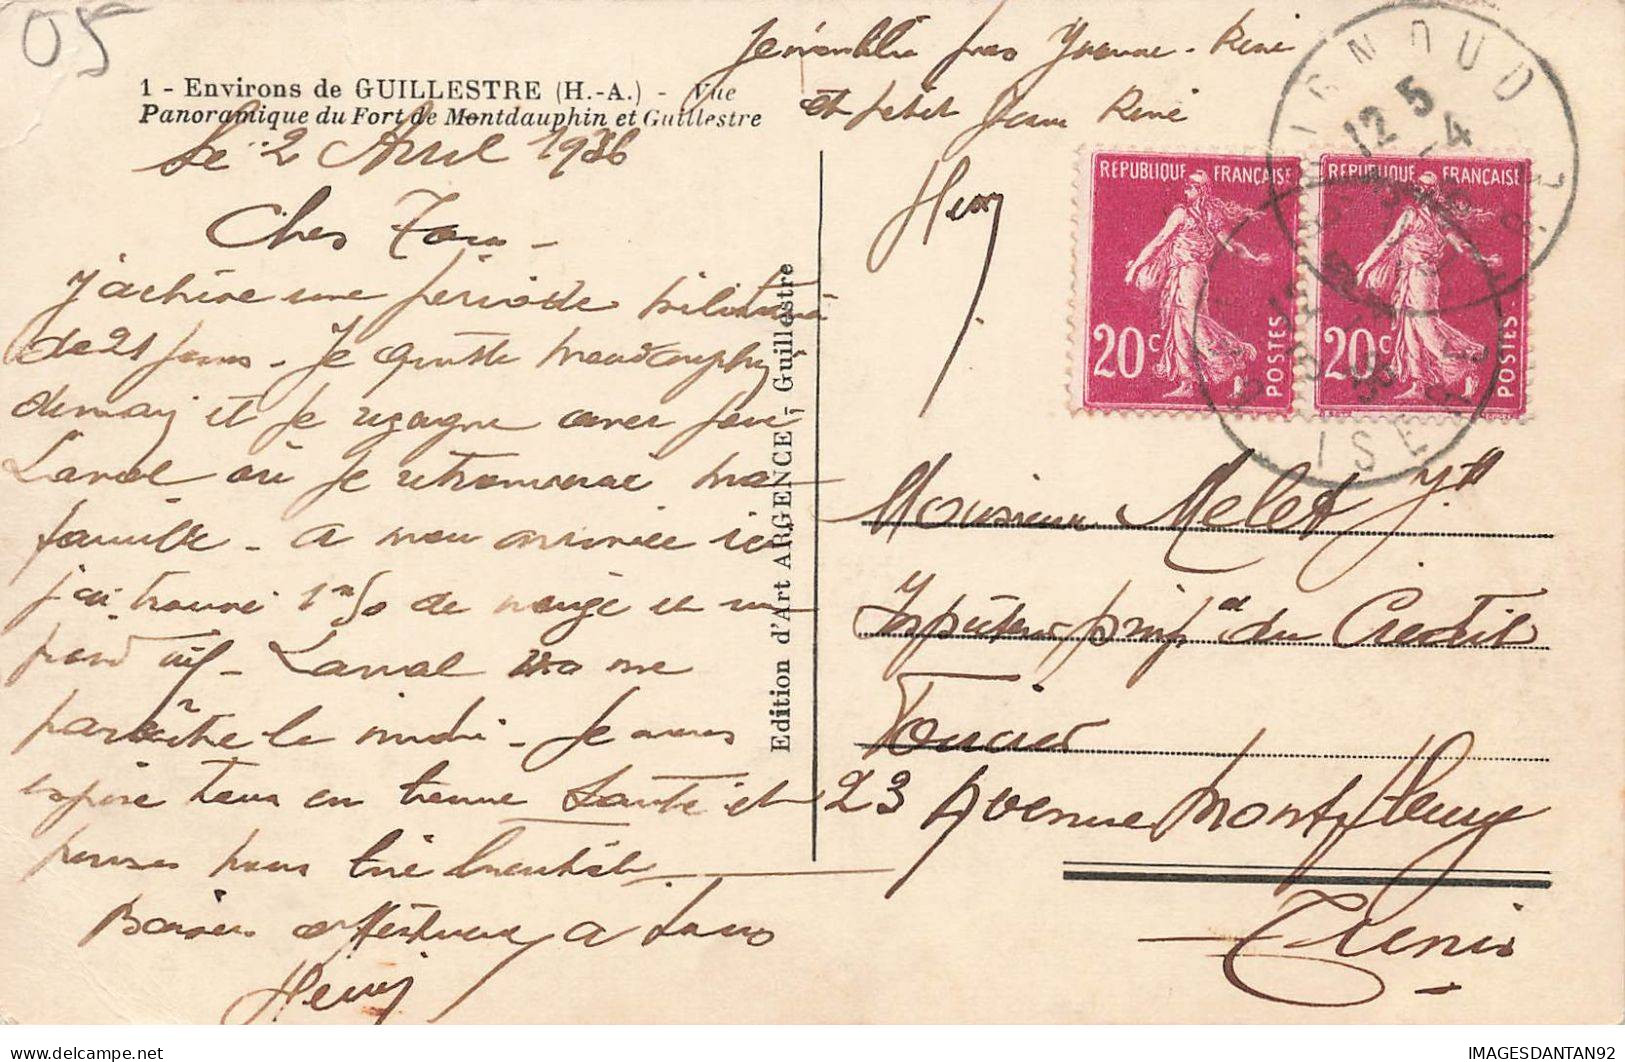 05
1 - Environs de GUILLESTRE (H.-A.) - Vue
Panoramique du Fort de Montdauphin et Guillestre
Le 2 Avril 1936
Chers Tous -
J'achève une période militaire
de 21 jours - Je quitte Montdauphin
demain et je regagne avec joie
Laval où je retrouverai ma
famille - A mon arrivée ici
j'ai trouvé 1m50 de neige et un
froid vif - Laval me
paraître le midi - Je vous
espère tous en bonne santé et
pense vous lire bientôt
Baisers affectueux à tous
Henri
Yvonne - René
et petit Jean René
Henry
Edition d'Art ARGENCE - Guillestre
REPUBLIQUE FRANÇAISE
20c
POSTES
REPUBLIQUE FRANÇAISE
20c
POSTES
12 5
-4
ISERE
Monsieur Melet
Inspecteur princip al du Crédit
Foncier
23 Avenue Montfleury
Tunis
IMAGESDANTAN92